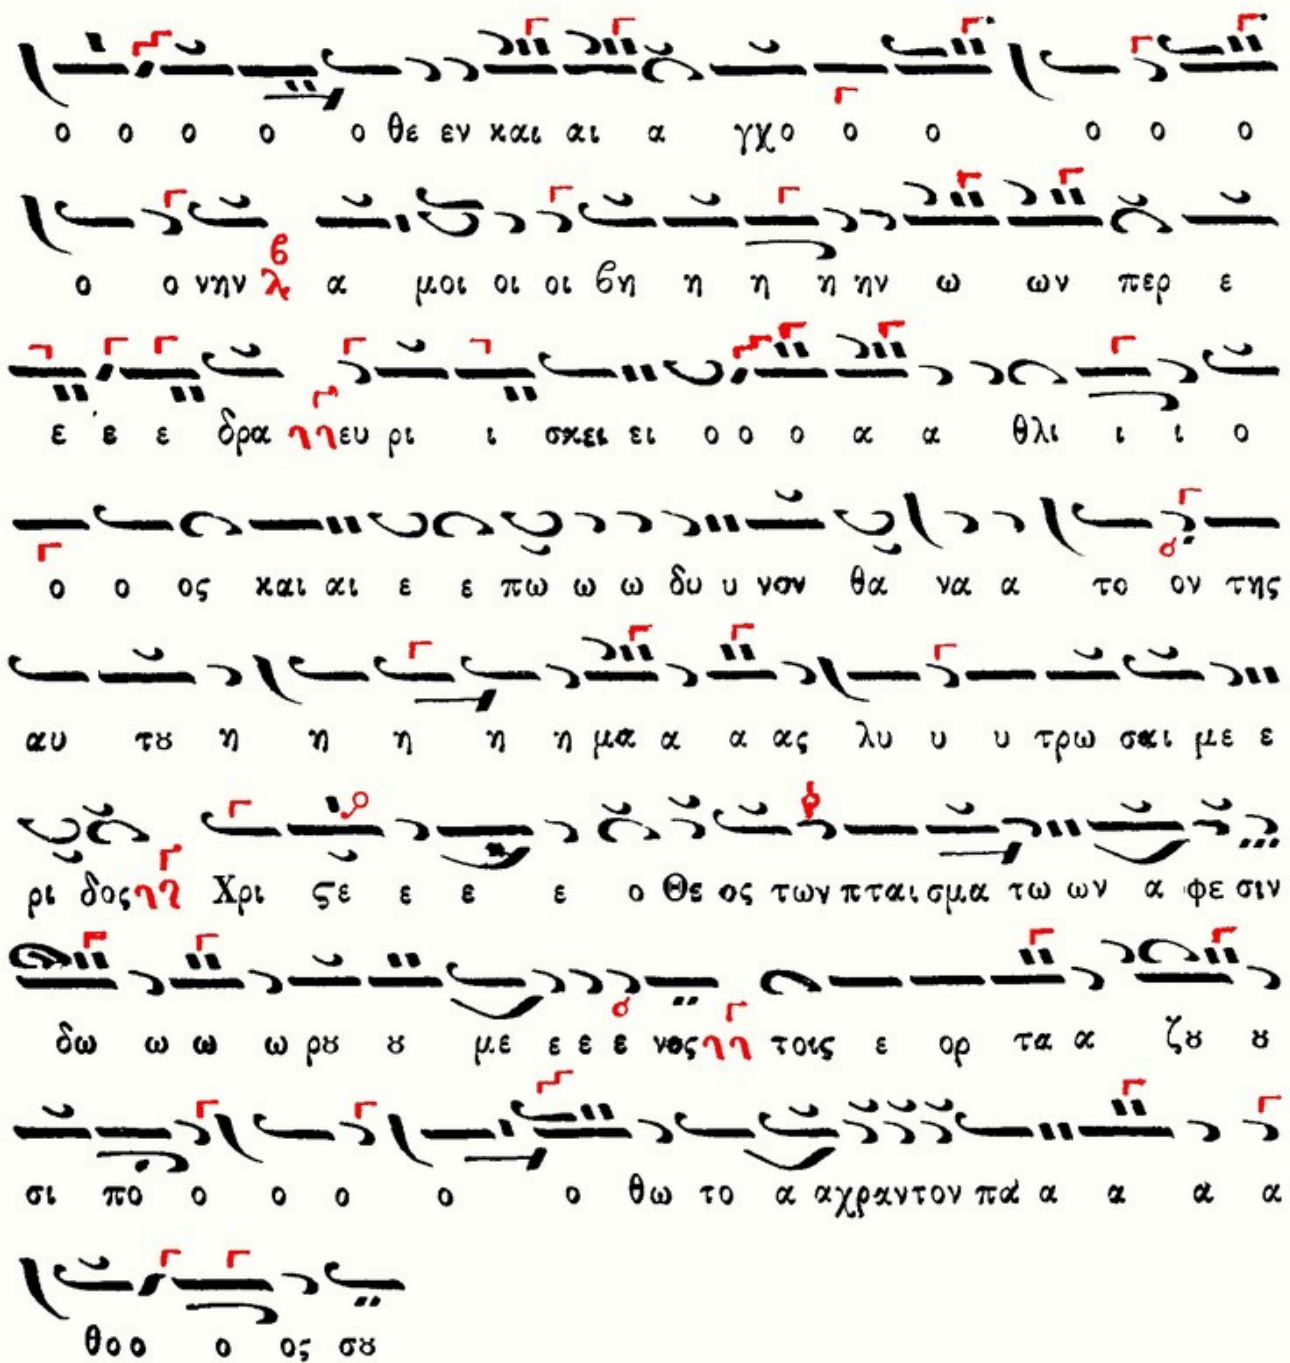 ο ο ο ο ο θε εν και αι α γχο ο ο ο ο ο
ο ο νην λ β α μοι οι οι βη η η η ην ω ων περ ε
ε ε ε δρα ευ ρι ι σκει ει ο ο ο α α θλι ι ι ο
ο ο ος και αι ε ε πω ω ω δυ υ νον θα να α το ον της
αυ τȣ η η η η η μα α α ας λυ υ υ τρω σαι με ε
ρι δος Χρι ϛε ε ε ε ο Θε ος των πται σμα τω ων α φε σιν
δω ω ω ω ρȣ ȣ με ε ε ε νος τοις ε ορ τα α ζȣ ȣ
σι πο ο ο ο ο ο θω το α αχραντον πα α α α α
θοο ο ος σȣ